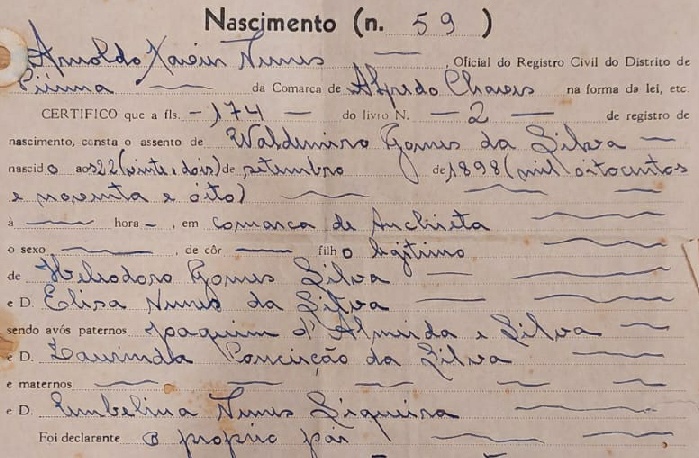 Nascimento (n. 59)
Arnoldo Xavier Nunes, Oficial do Registro Civil do Distrito de
Piúma da Comarca de Alfredo Chaves na forma da lei, etc.
CERTIFICO que a fls. 174 do livro N. 2 de registro de
nascimento, consta o assento de Waldemiro Gomes da Silva
nascido aos 22 (vinte e dois) de setembro de 1898 (mil oitocentos
e noventa e oito)
à hora, em comarca de Anchieta
o sexo, de côr filho legitimo
de Heliodoro Gomes Silva
e D. Elisa Nunes da Silva
sendo avós paternos Joaquim d'Almeida e Silva
e D. Laurinda Conceição da Silva
e maternos
e D. Umbelina Nunes Siqueira
Foi declarante o proprio pai